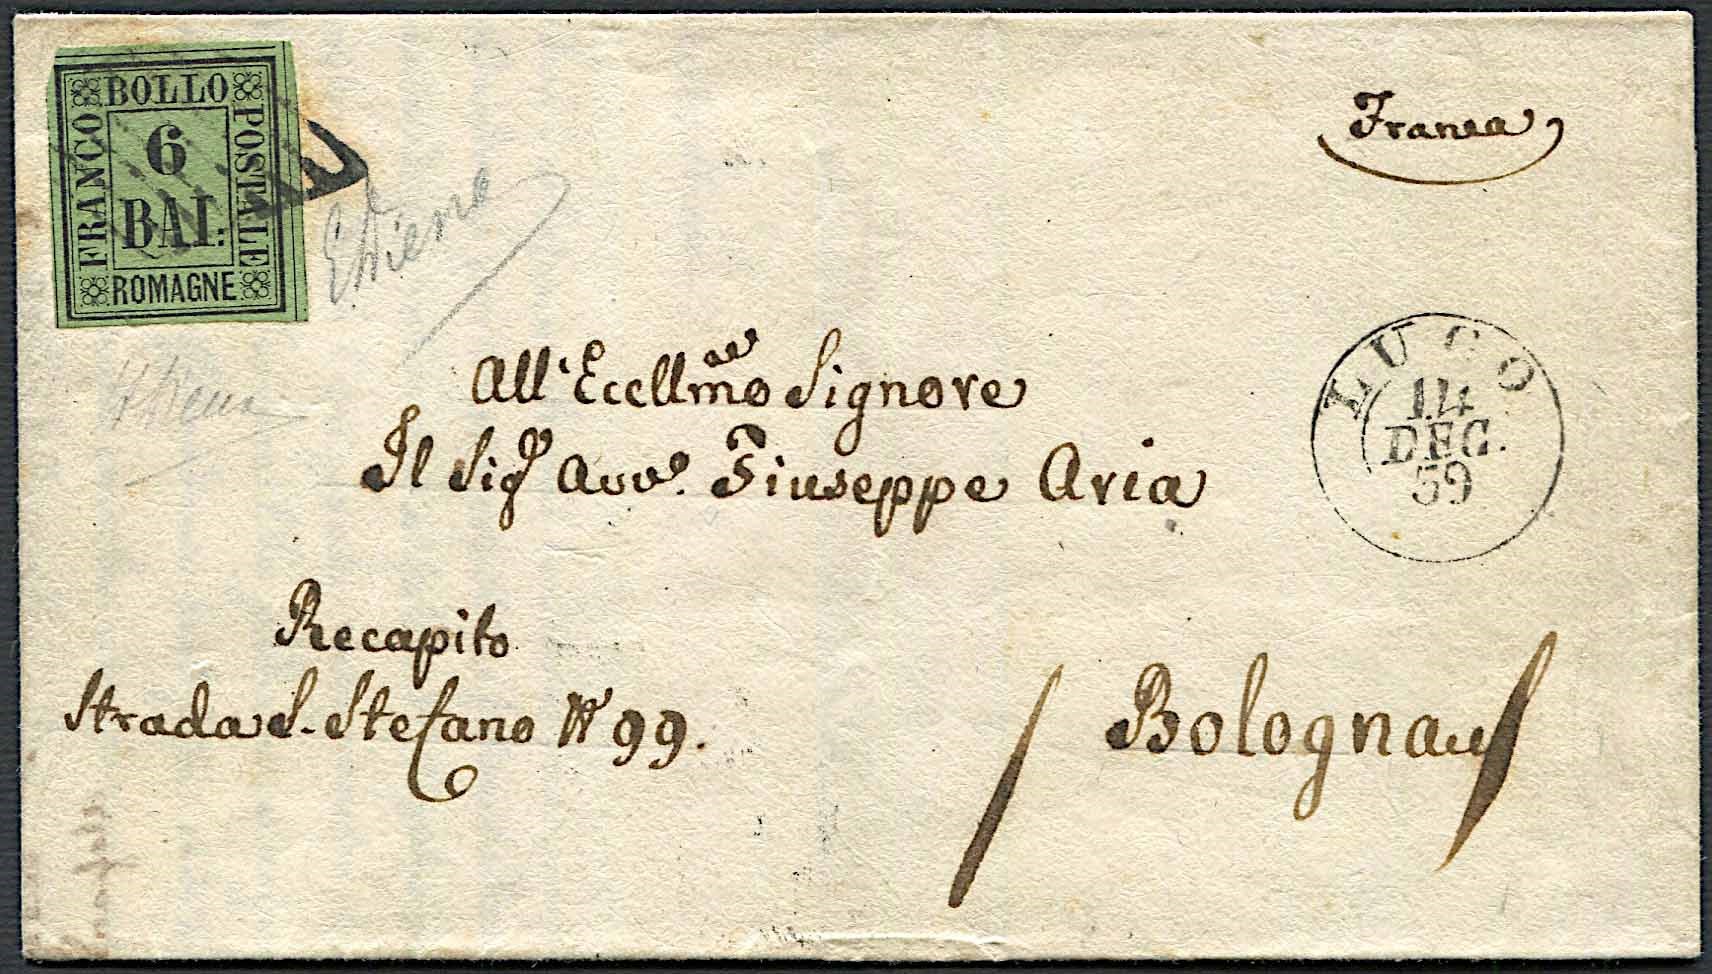 BOLLO
FRANCO
POSTALE
6
BAI:
ROMAGNE
Franca
E. Diena
LUGO
14
DEC.
59
All'Ecellmo Signore
Il Sigr Avv. Giuseppe Aria
Recapito
Strada S. Stefano N 99.
Bologna